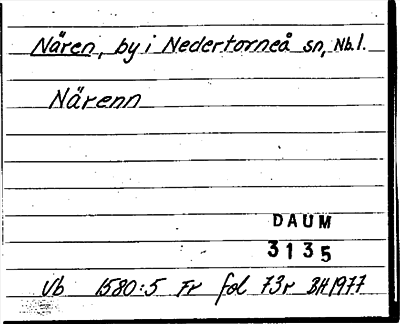 Nären, by i Nedertorneå sn, Nb.l.
Närenn
DAUM
3135
Vb 1580:5 Fr fol 73r BH 1977